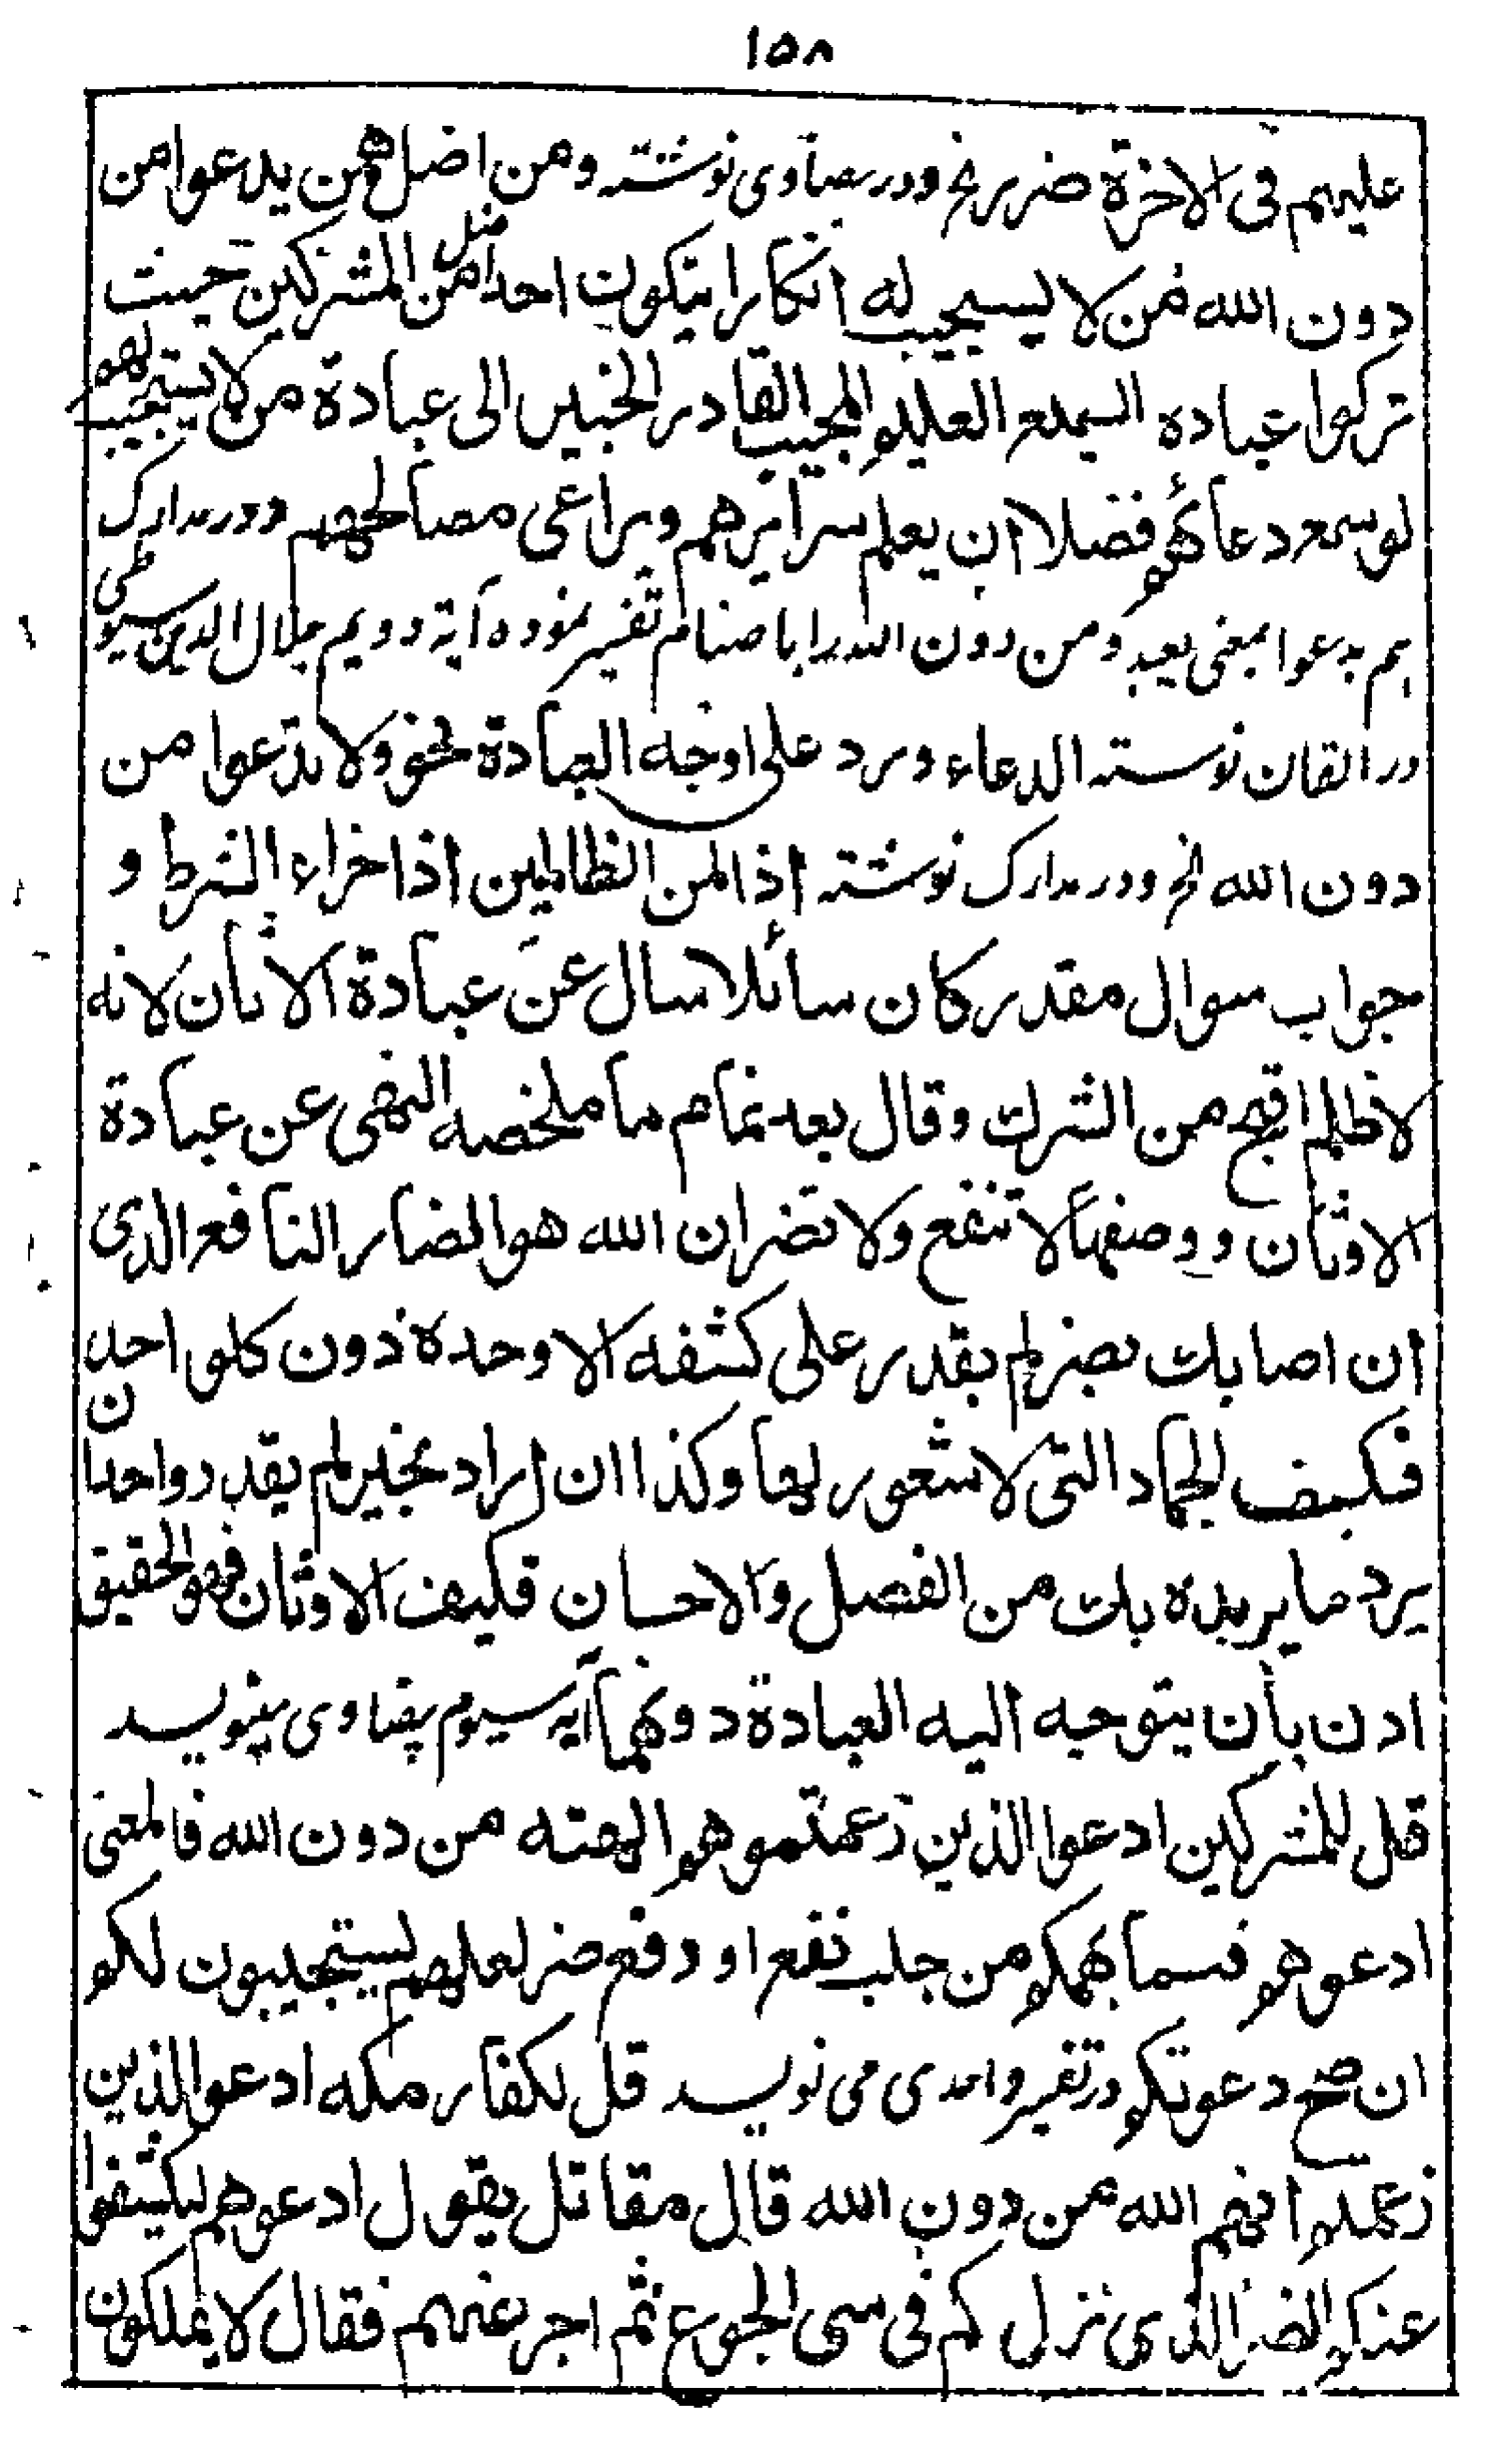 ١٥٨
عليهم فى الاخرة ضررير الخ ودر بيضاوى نوشته ومن اضل ممن يدعوا من
دون الله من لا يستجيب له انكارا يتكون احد اضل من المشركين حيث
تركوا عباده السميع العليم المجيب القادر الخبير الى عبادة من لا يستجيب لهم
لو سمع دعائهم فضلا ان يعلم سرائرهم ويراعى مصالحهم ودر مدارک
هم يدعوا بمعنى يعبد ومن دون الله را باصنام تفسير نموده آية دويم جلال الدين سيوطى
در اتقان نوسته الدعاء ورد على اوجه العبادة نحو ولا تدعوا من
دون الله الخ ودر مدارک نوشته اذا لمن الظالمين اذا خزاء الشرط و
جواب سوال مقدر كان سائلا سال عن عبادة الاثان لانه
لا ظلم اقبح من الشرك وقال بعد تمام ما ملخصه النهى عن عبادة
الاوثان ووصفها لا تنفع ولا تضر ان الله هو الضار النافع الذى
ان اصابك بضر لم يقدر على كشفه الا وحده دون كلو احد
فكيف الجماد التى لا شعور لها وكذا ان اراد بخير لم يقدر واحدا ن
يرد ما يريده بك من الفضل والاحسان فكيف الاوثان فهو الحقيق
ادن بأن يتوجه اليه العبادة دونها آيه سيوم بيضاوى مينويسد
قل للمشركين ادعوا الذين زعمتموهم الهته من دون الله فالمعنى
ادعوهم فيما يهمكم من جلب نفع او دفع ضر لعلهم يستجيبون لكم
ان صح دعوتكم در تفسير واحدى مى نويسد قل لكفار مكه ادعوا الذين
زعمتم انهم الله من دون الله قال مقاتل يقول ادعوهم ليكشفوا
عنكم الضر الذى نزل كم فى سى الجوع ثم اجر عنهم فقال لا يملكون